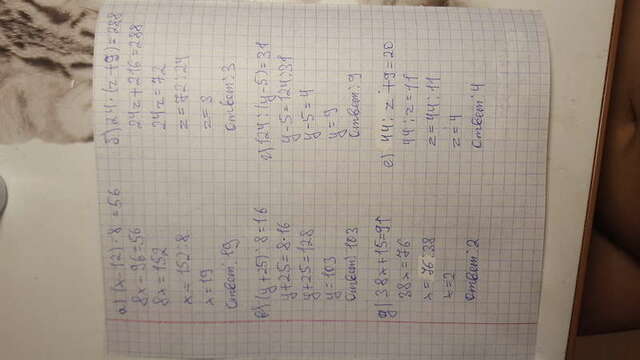 а) (x-12)·8=56
8x-96=56
8x=152
x=152:8
x=19
Ответ: 19
б) 24·(z+9)=288
24z+216=288
24z=72
z=72:24
z=3
Ответ: 3
в) (y+25):8=16
y+25=8·16
y+25=128
y=103
Ответ: 103
г) 124:(y-5)=31
y-5=124:31
y-5=4
y=9
Ответ: 9
д) 38x+15=91
38x=76
x=76:38
x=2
Ответ: 2
е) 44:z+9=20
44:z=11
z=44:11
z=4
Ответ: 4